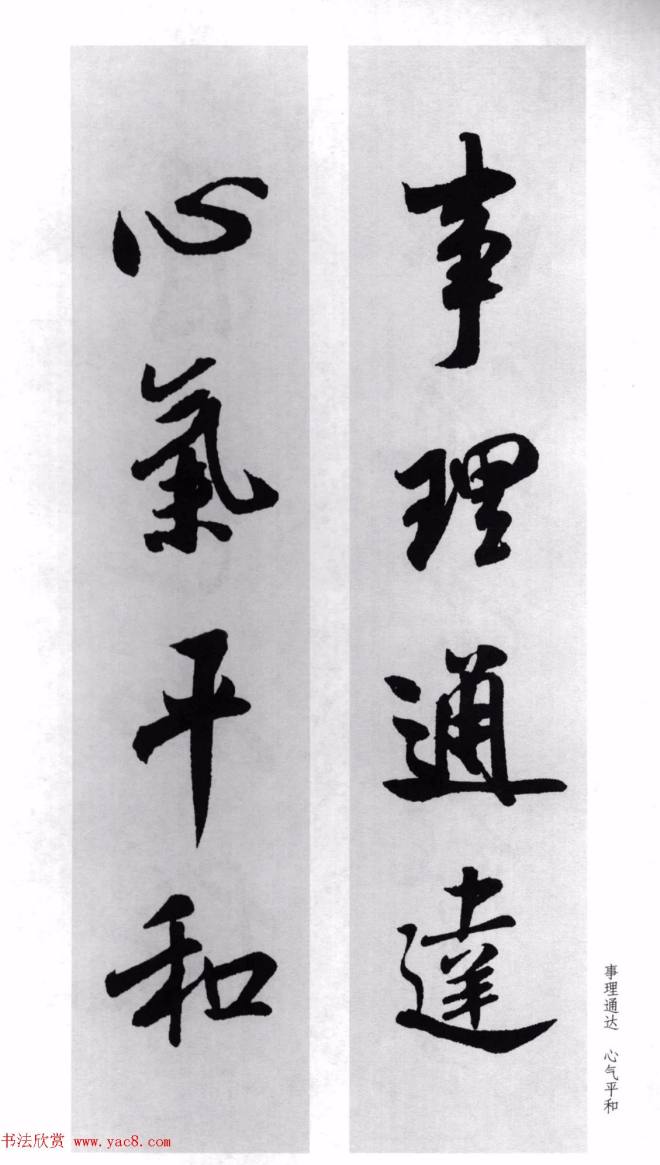 事理通達
心氣平和
事理通达 心气平和
书法欣赏 www.yac8.com